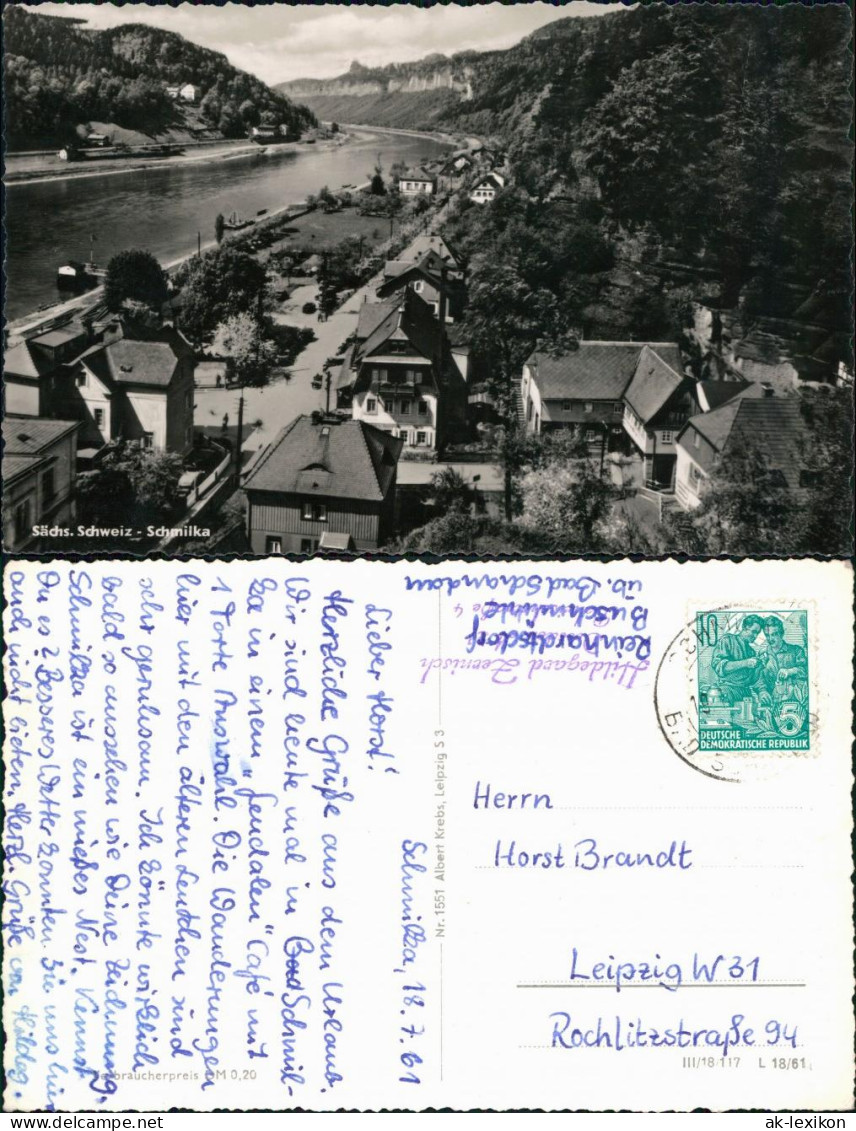 Sächs. Schweiz - Schmilka
Schmilka, 18.7.61
Lieber Horst!
Herzliche Grüße aus dem Urlaub.
Wir sind heute mal in Bad Schmil-
ka in einem „feudalen“ Café mit
1 Torte Auswahl. Die Wanderungen
hier mit den älteren Leutchen sind
sehr geruhsam. Ich könnte wirklich
bald so aussehen wie Deine Zeichnung.
Schmilka ist ein mießes Nest. Kennst
Du es? Besseres Wetter könnten Sie uns hier
auch nicht bieten. Herzl. Grüße von Hildeg.
Verbraucherpreis DM 0,20
Nr. 1551 Albert Krebs, Leipzig S 3
Hildegard Zernisch
Reinhardtsdorf
Buschmühle
üb. Bad Schandau
10
5
DEUTSCHE
DEMOKRATISCHE REPUBLIK
Herrn
Horst Brandt
Leipzig W 31
Rochlitzstraße 94
III/18/117 L 18/61
www.ak-ansichtskarten.de
ak-lexikon